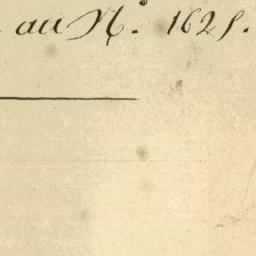 au N.° 1625.